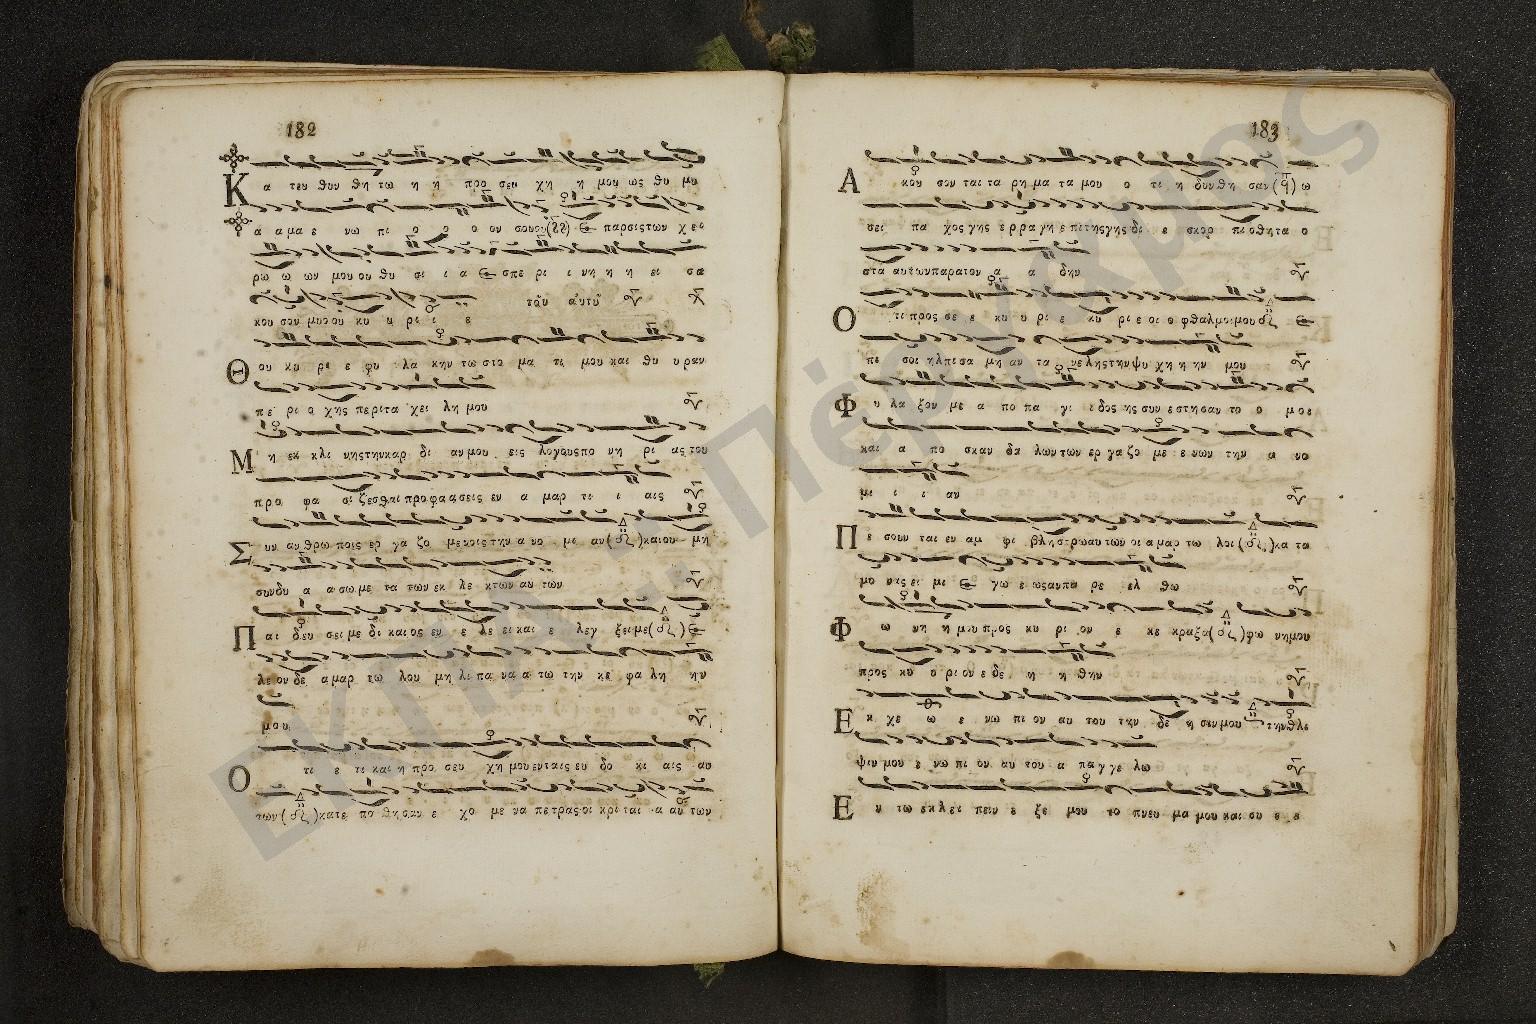 182
Κ α τευ θυν θη τω η η προ σευ χη η μου ως θυ μι
α α μα ε νω πι ο ο ο ον σου επαρσις των χει
ρω ω ων μου ου θυ σι ι α ε σπε ρι ι νη η η ει σα
κου σον μου ου κυ υ ρι ι ε του αυτου
Θ ου κυ ρι ε φυ λα κην τω στο μα τι μου και θυ υ ραν
πε ρι ο χης περι τα χει λη μου
Μ η εκ κλι νης την καρ δι αν μου εις λογους πο νη ρι ας του
προ φα σι ζεσθαι προφασεις εν α μαρ τι ι αις
Σ υν αν θρω ποις ερ γα ζο μενοις την α νο μι αν και ου μη
συνδυ α α σω με τα των εκ λε κτων αυ των
Π αι δευ σει με δι καιος εν ε λε ει και ε λεγ ξει με ε
λε ον δε αμαρ τω λου μη λιπανα α τω την κε φα λη ην
μου
Ο τι ε τι και η προ σευ χη μου εν ταις ευ δο κι αις αυ
των κατε πο θησαν ε χο με να πετρας οι κριται α αυ των
183
Α κου σον ται τα ρη μα τα μου ο τι η δυν θη σαν ω
σει πα χος γης ερραγη επι της γης δι ε σκορ πισθη τα ο
στα αυτων παρα τον α α δην
Ο τι προς σε ε κυ υ ρι ε κυ ρι ε οι ο φθαλμοι μου ε
πι σοι ηλπισα μη αν τα νελης την ψυ χη η ην μου
Φ υ λα ξον με α πο πα γι ι δος ης συν εστησαν το ο μοι
και α πο σκαν δα λων των ερ γα ζο με ε νων την α νο
μι ι ι αν
Π ε σουν ται εν αμ φι βληστρω αυ των οι α μαρ τω λοι κα τα
μο νας ει μι ε γω ε ως αν πα ρε ελ θω
Φ ω νη η μου προς κυ ρι ον ε κε κραξα φω νη μου
προς κυ υ ριον ε δε η η θην
Ε κ χε ω ε νω πι ον αυ του την δε η σιν μου την θλι
ψιν μου ε νω πι ον αυ του α παγ γε λω
Ε ν τω εκλει πειν ε ξε μου το πνευ μα μου και συ ε ε